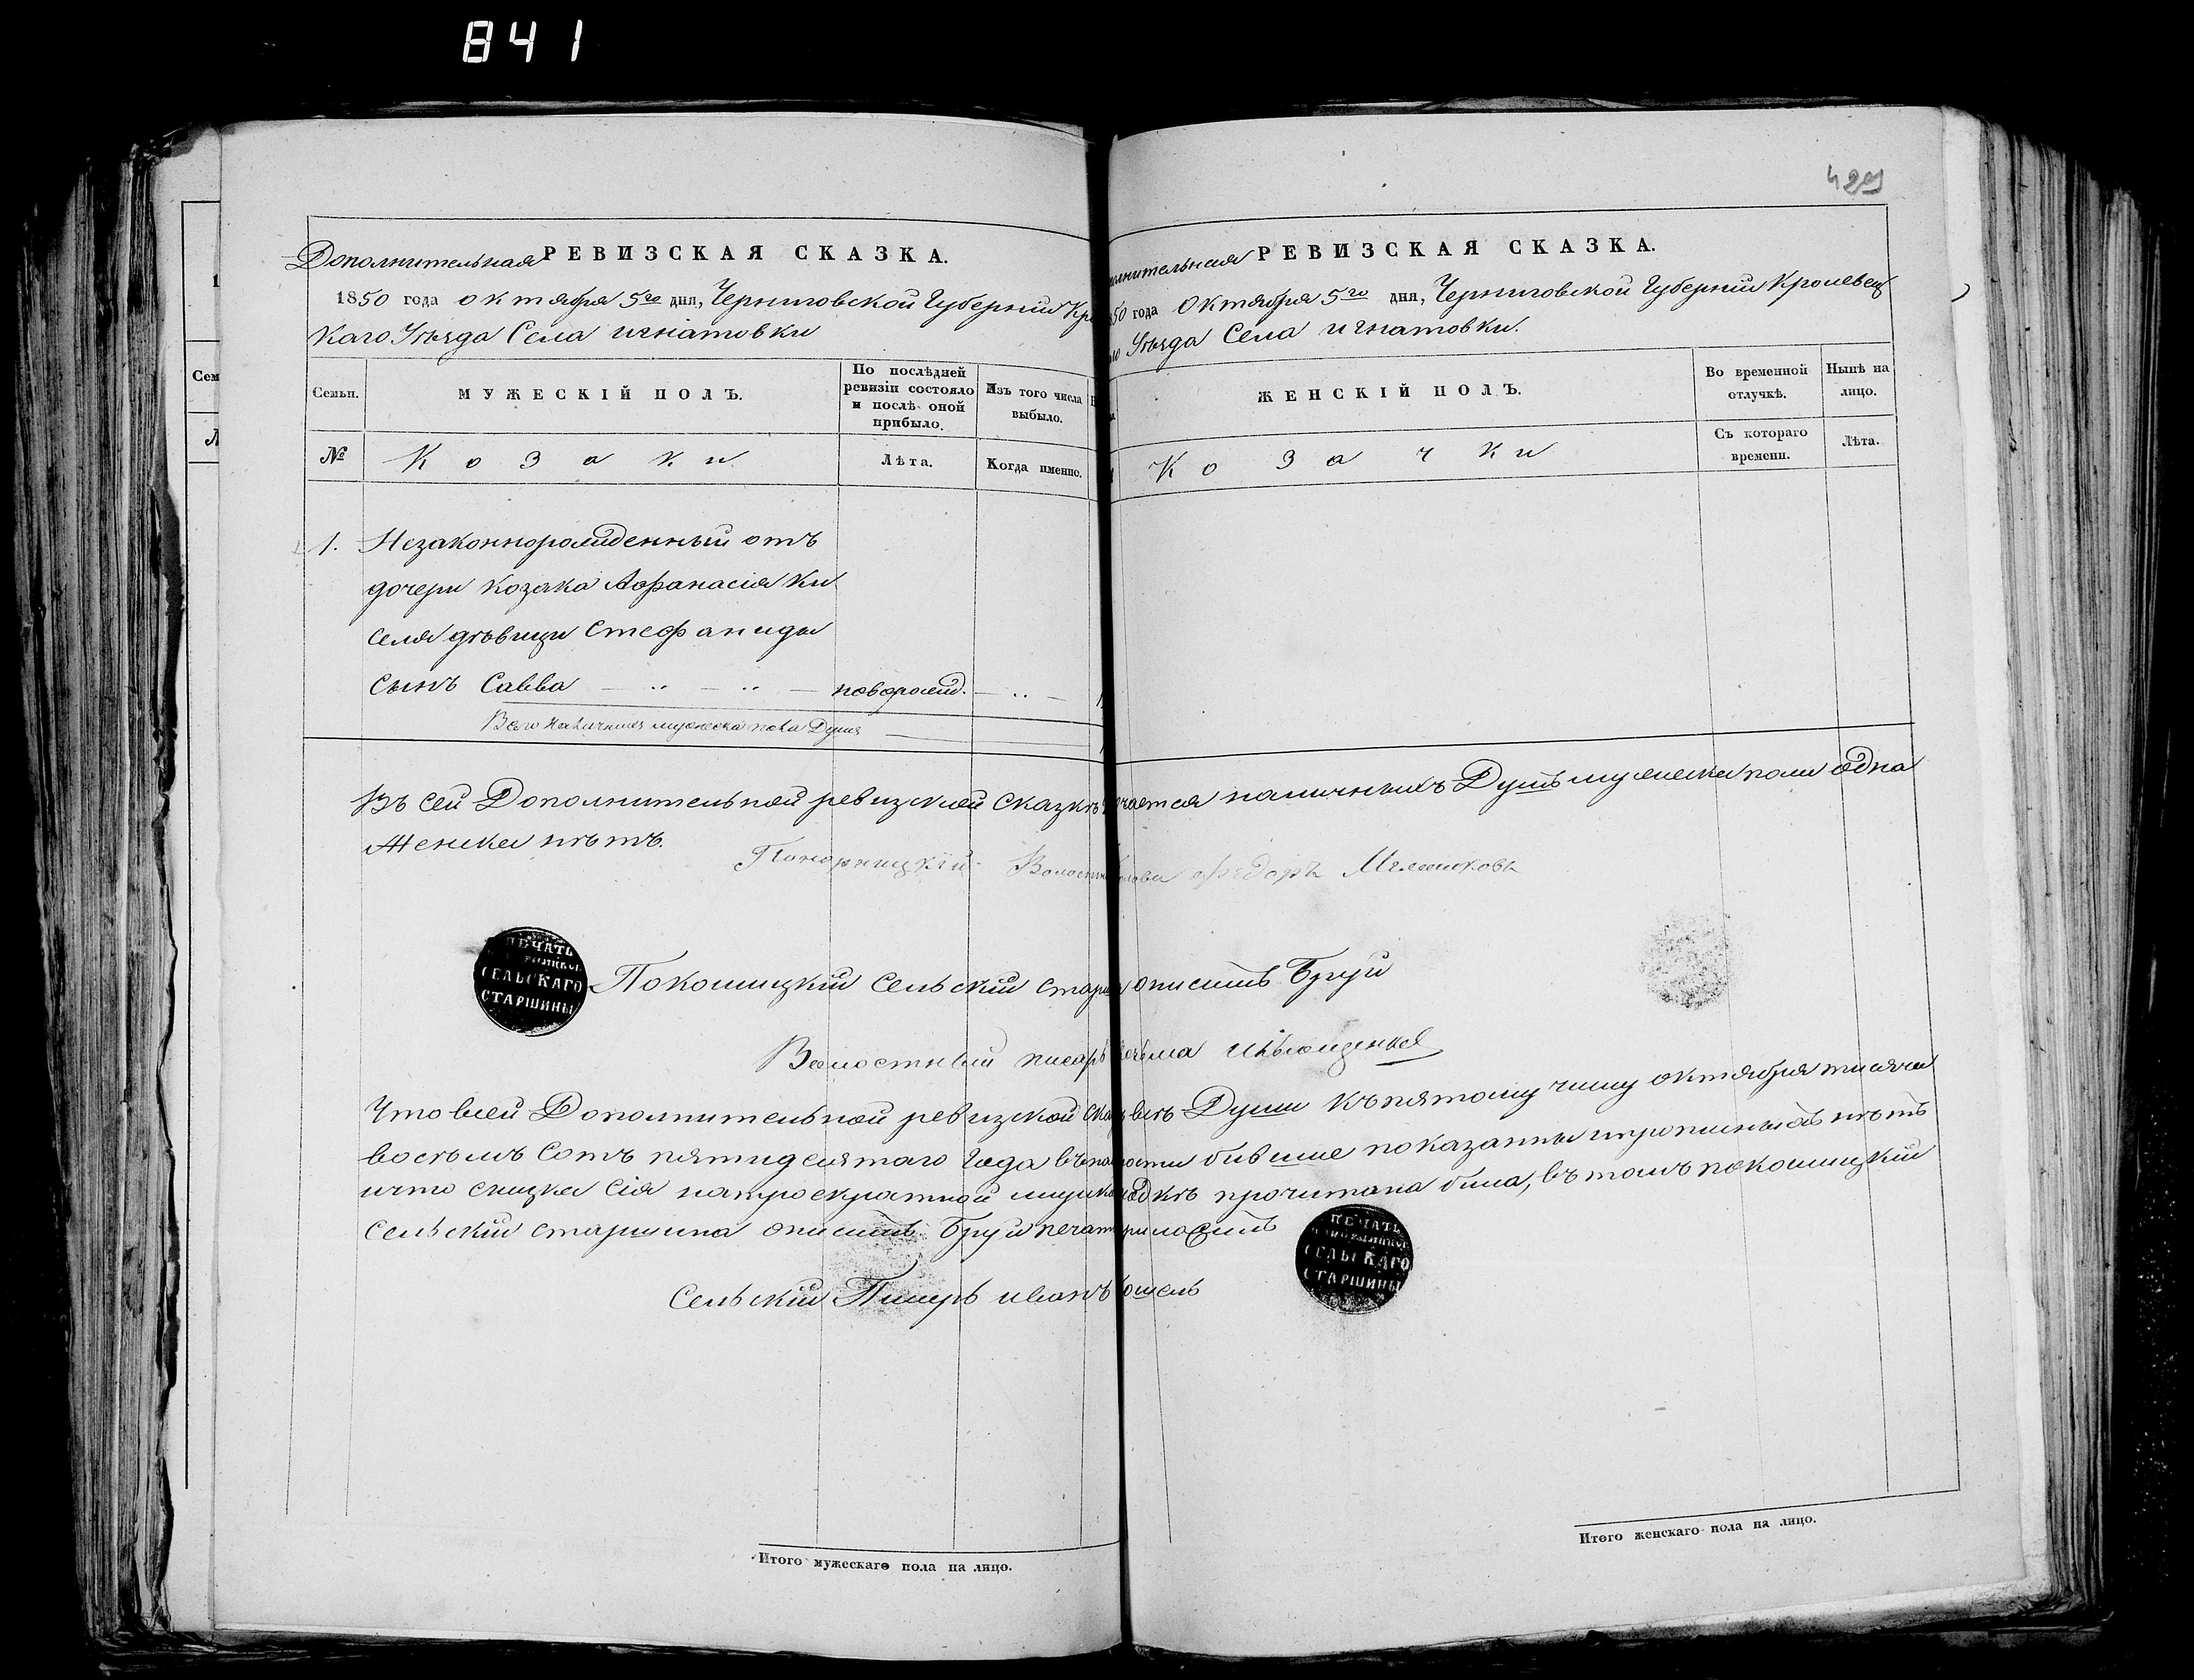 841
429
Дополнительная РЕВИЗСКАЯ СКАЗКА.
1850 года октября 5го дня, Черниговской Губернии Кр
каго Уѣзда Села игнатовки
Семьи.
МУЖЕСКІЙ ПОЛЪ.
По послѣдней
ревизіи состояло
и послѣ оной
прибыло.
Изъ того числа
выбыло.
№
Козаки
Лѣта.
Когда именно.
1. Незаконнорожденный отъ
дочери козака Афанасія Ки
селя дѣвици Стефаниды
сынъ Савва — „ — „ — новорожд. — „ —
Всего наличныхъ мужеска пола Душъ
олнительная РЕВИЗСКАЯ СКАЗКА.
50 года Октября 5го дня, Черниговской Губерніи Кролевец
го Уѣзда Села игнатовки.
ЖЕНСКІЙ ПОЛЪ.
Во временной
отлучкѣ.
Нынѣ на
лицо.
Козачки
Съ котораго
времени.
Лѣта.
Въ сей Дополнительной ревизской сказкѣ чается наличныхъ Душъ мужеска пола одна
Женска нѣтъ.
Понорницкій Волостн олова Федоръ
ПЕЧАТЬ
СЕЛЬСКАГО
СТАРШИНЫ
Покошицкій Сельскій старш онисимъ Бруй
Волостный писарь
Что всей Дополнительной ревизской ска всѣ Души къ пятому числу октября тисяча
восемъ Сотъ пятидесятаго Года въ на ости бившие показанны и прописныхъ нѣтъ
и что скаска сія на прочитана била, въ томъ покошицкій
Сельскій старшина онисимъ Бруй печат риложилъ
ПЕЧАТЬ
СЕЛЬСКАГО
СТАРШИНЫ
Сельскій Писарь иванъ
Итого мужескаго пола на лицо.
Итого женскаго пола на лицо.